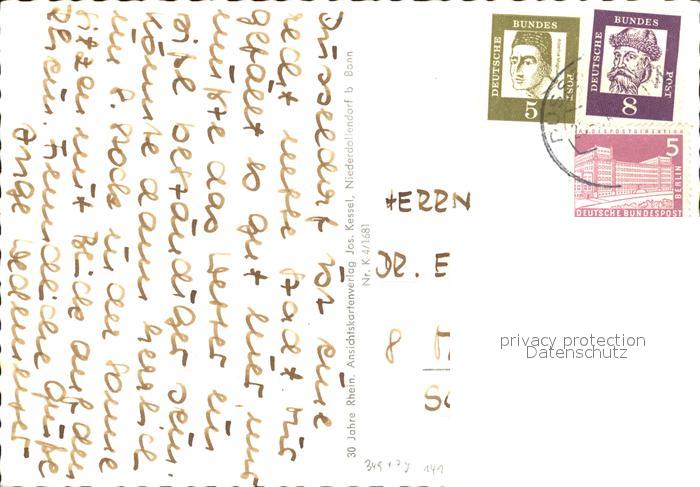 Düsseldorf ist eine
recht nette Stadt. Mir
gefällt es gut hier, nur
müßte das Wetter ein
bißle beständiger sein.
könnte dann herrlich
im 8. Stock in der Sonne
sitzen mit Blick auf den
Rhein. Freundliche Grüße
Inge
30 Jahre Rhein. Ansichtskartenverlag Jos. Kessel, Niederdollendorf b Bonn
Nr. K 4/1681
DEUTSCHE BUNDESPOST
5
DEUTSCHE BUNDESPOST
8
5
BERLIN
DEUTSCHE BUNDESPOST
HERRN
DR. E
8
privacy protection
Datenschutz
141